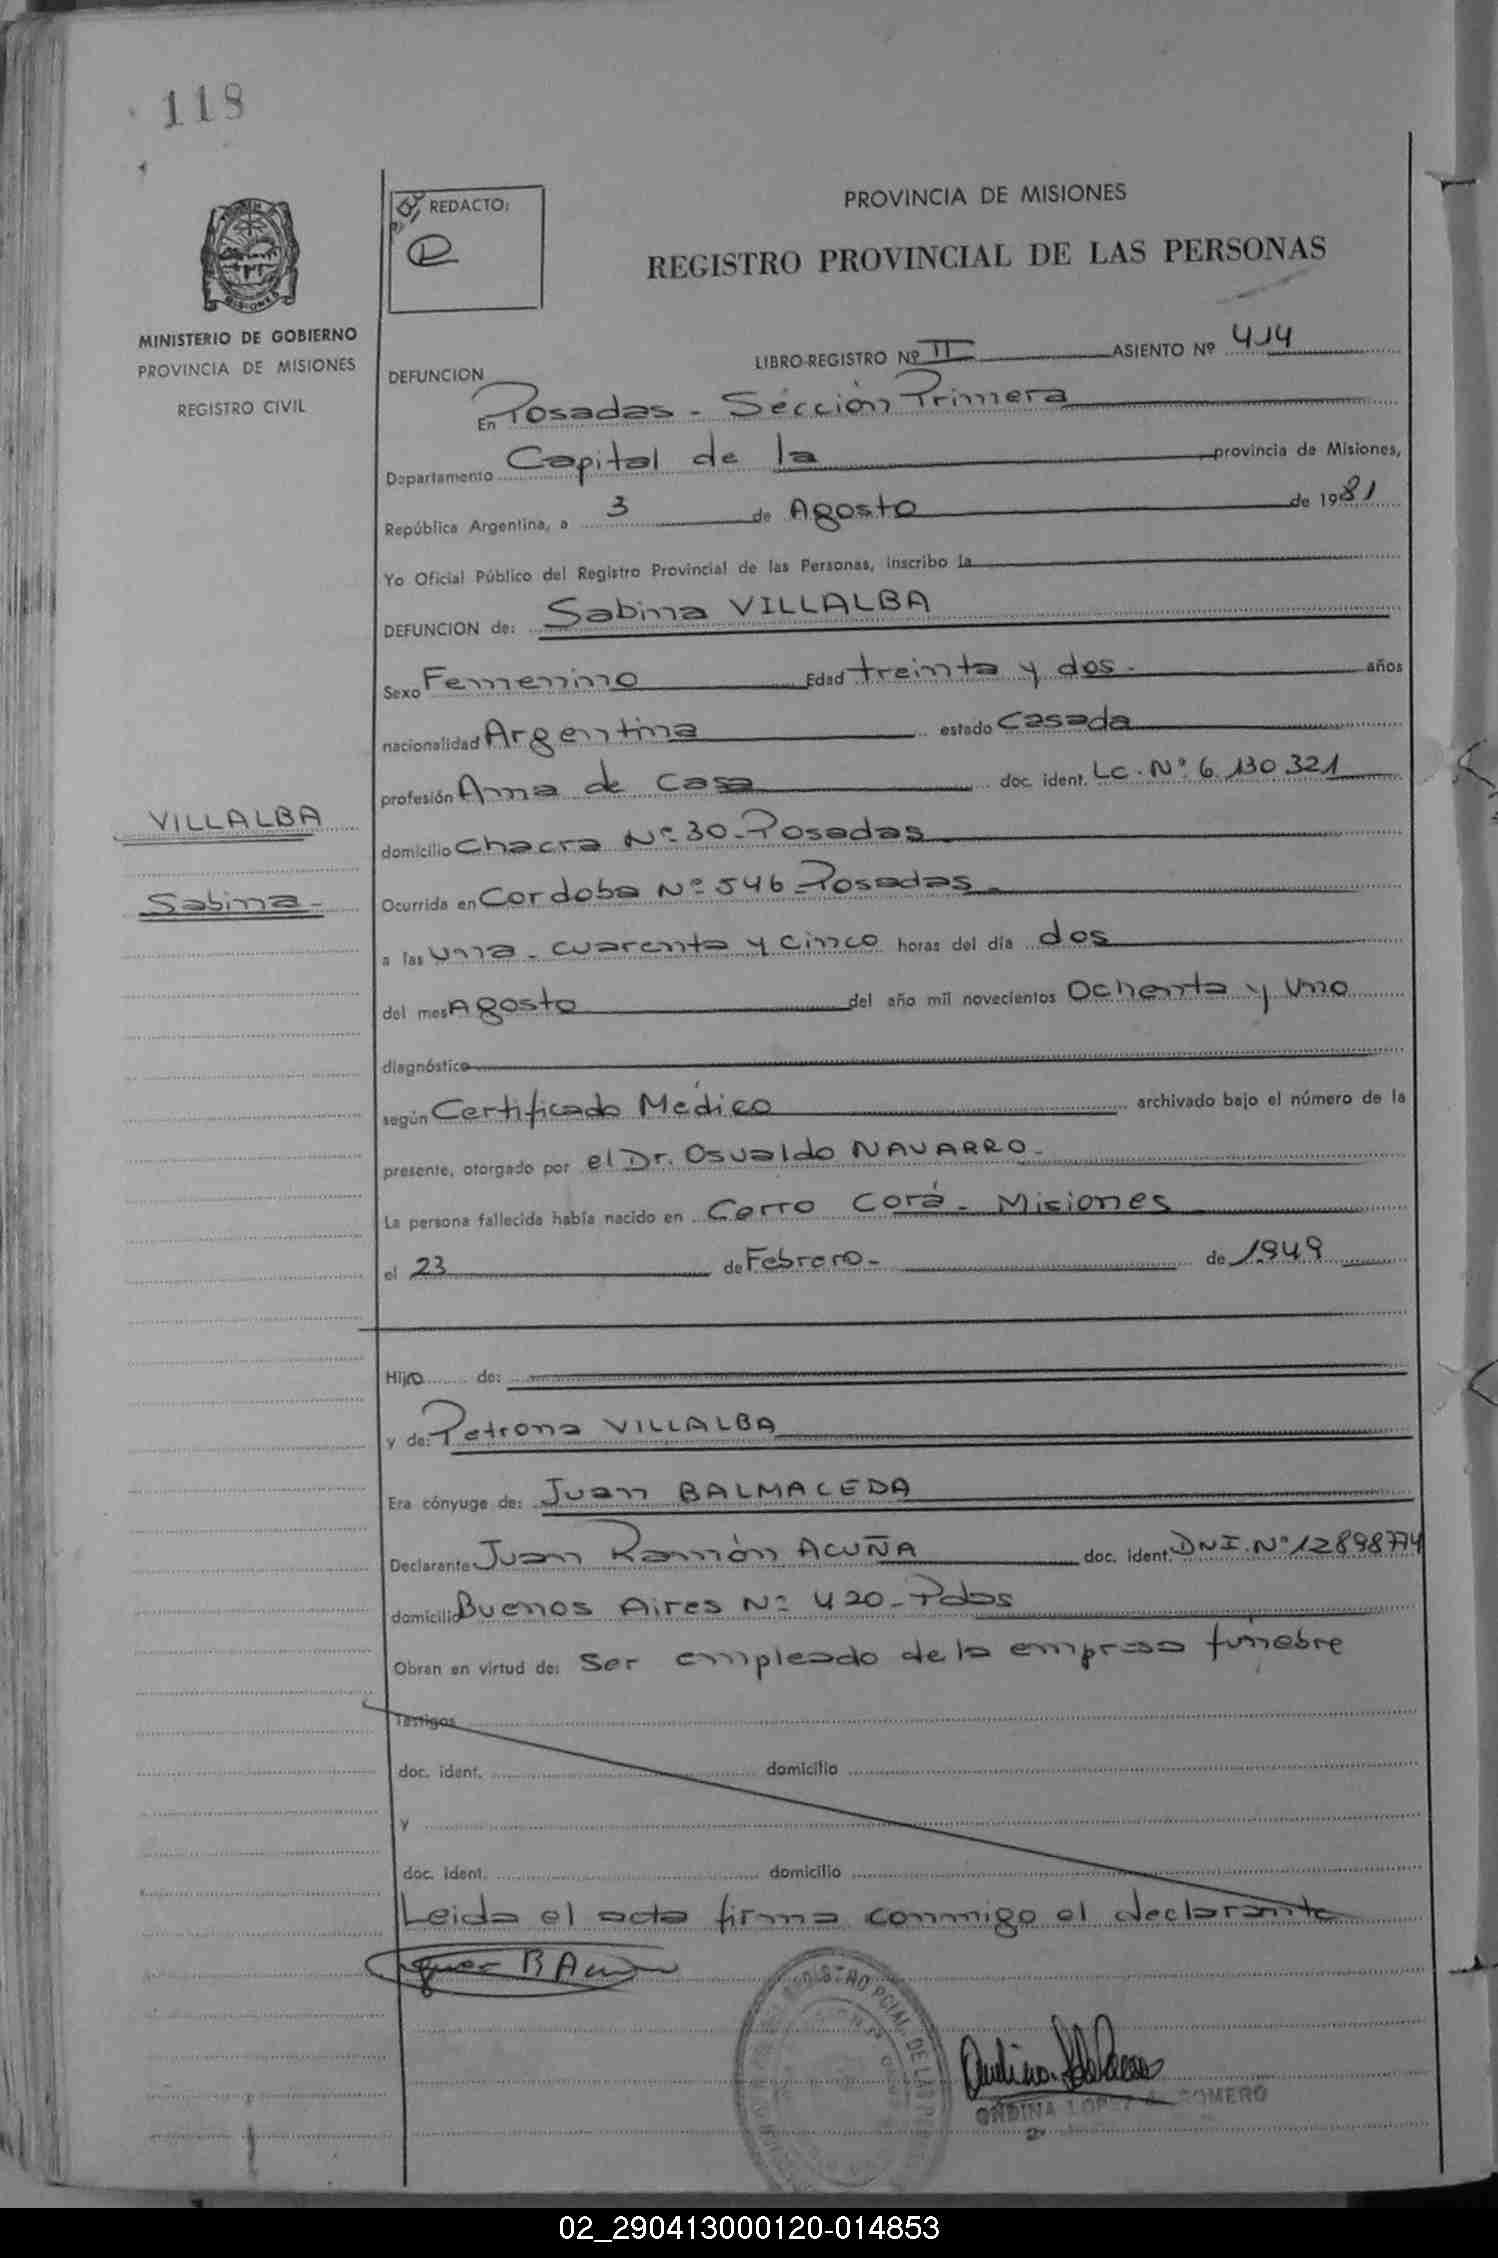 118
REDACTO:
PROVINCIA DE MISIONES
REGISTRO PROVINCIAL DE LAS PERSONAS
MISIONES
MINISTERIO DE GOBIERNO
PROVINCIA DE MISIONES
REGISTRO CIVIL
LIBRO-REGISTRO Nº II ASIENTO Nº 414
DEFUNCION
En Posadas - Sección Primera
Departamento Capital de la provincia de Misiones,
República Argentina, a 3 de Agosto de 1981
Yo Oficial Público del Registro Provincial de las Personas, inscribo la
DEFUNCION de: Sabina VILLALBA
Sexo Femenino Edad treinta y dos - años
nacionalidad Argentina estado Casada
profesión Ama de Casa doc. ident. LC. Nº 6.130.321
VILLALBA
domicilio Chacra Nº 30 - Posadas
Sabina -
Ocurrida en Cordoba Nº 546 - Posadas -
a las una - cuarenta y cinco horas del día dos
del mes Agosto del año mil novecientos Ochenta y Uno
diagnóstico
según Certificado Médico archivado bajo el número de la
presente, otorgado por el Dr. Osvaldo NAVARRO -
La persona fallecida había nacido en Cerro Corá - Misiones
el 23 de Febrero - de 1.949
Hijo de:
y de: Petrona VILLALBA
Era cónyuge de: Juan BALMACEDA
Declarante Juan Ramón ACUÑA doc. ident. DNI. Nº 12898774
domicilio Buenos Aires Nº 420 - Pdas
Obran en virtud de: Ser empleado de la empresa fúnebre
Testigos
doc. ident. domicilio
y
doc. ident. domicilio
Leida el acta firma conmigo el declarante
REGISTRO PCIAL. DE LAS
ONDINA LOPEZ ROMERO
02_290413000120-014853